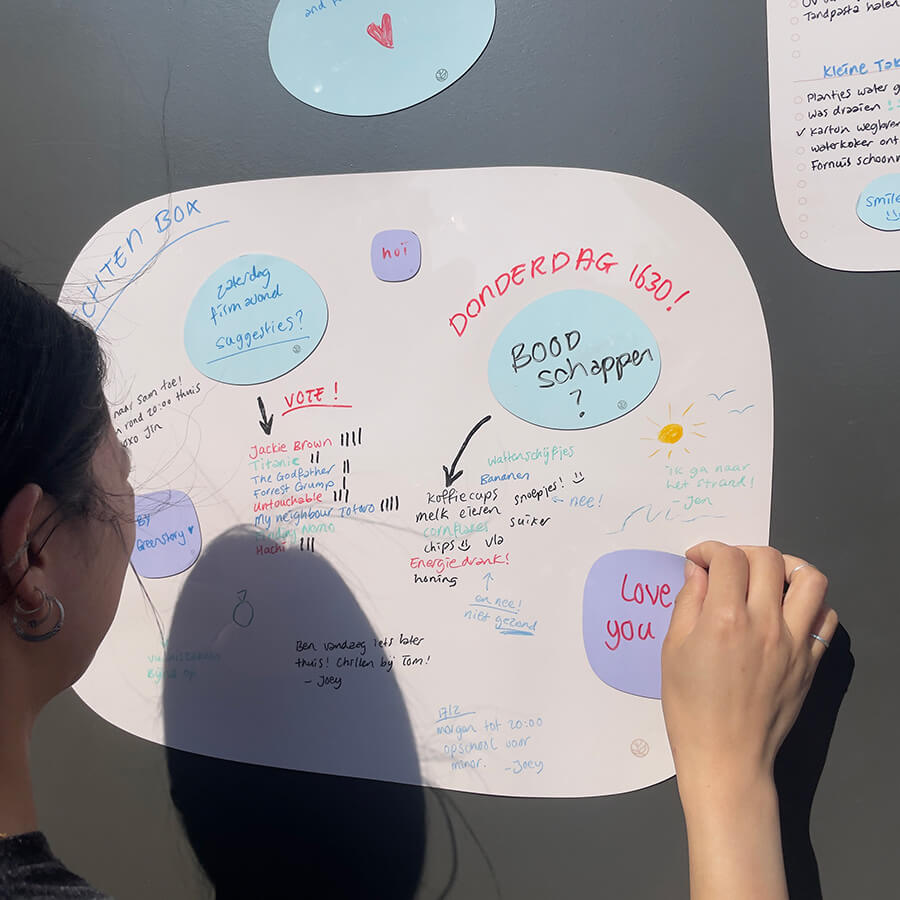 ♥
Tandpasta halen
Kleine
Plantjes water
was draaien
✓ Karton
waterkoker
Fornuis
smile
BOX
hoi
zaterdag
filmavond
suggesties?
DONDERDAG 1630!
BOOD
schappen
?
naar sam toe!
rond 20:00 thuis
xoxo Jin
VOTE!
Jackie Brown
Titanic
The Godfather
Forrest Grump
Untouchable
My neighbour Totoro
Finding Nemo
Hachi
Wattenschijfjes
Bananen
koffiecups
snoepjes!
nee!
melk eieren
suiker
cornflakes
chips vla
Energie drank!
honing
en nee!
niet gezond
ik ga naar
het strand!
- Jen
BY
Greenstory ♥
Love
you
Ben vandaag iets later
thuis! Chillen bij Tom!
- Joey
17/2
morgen tot 20:00
op school voor
minor. - Joey